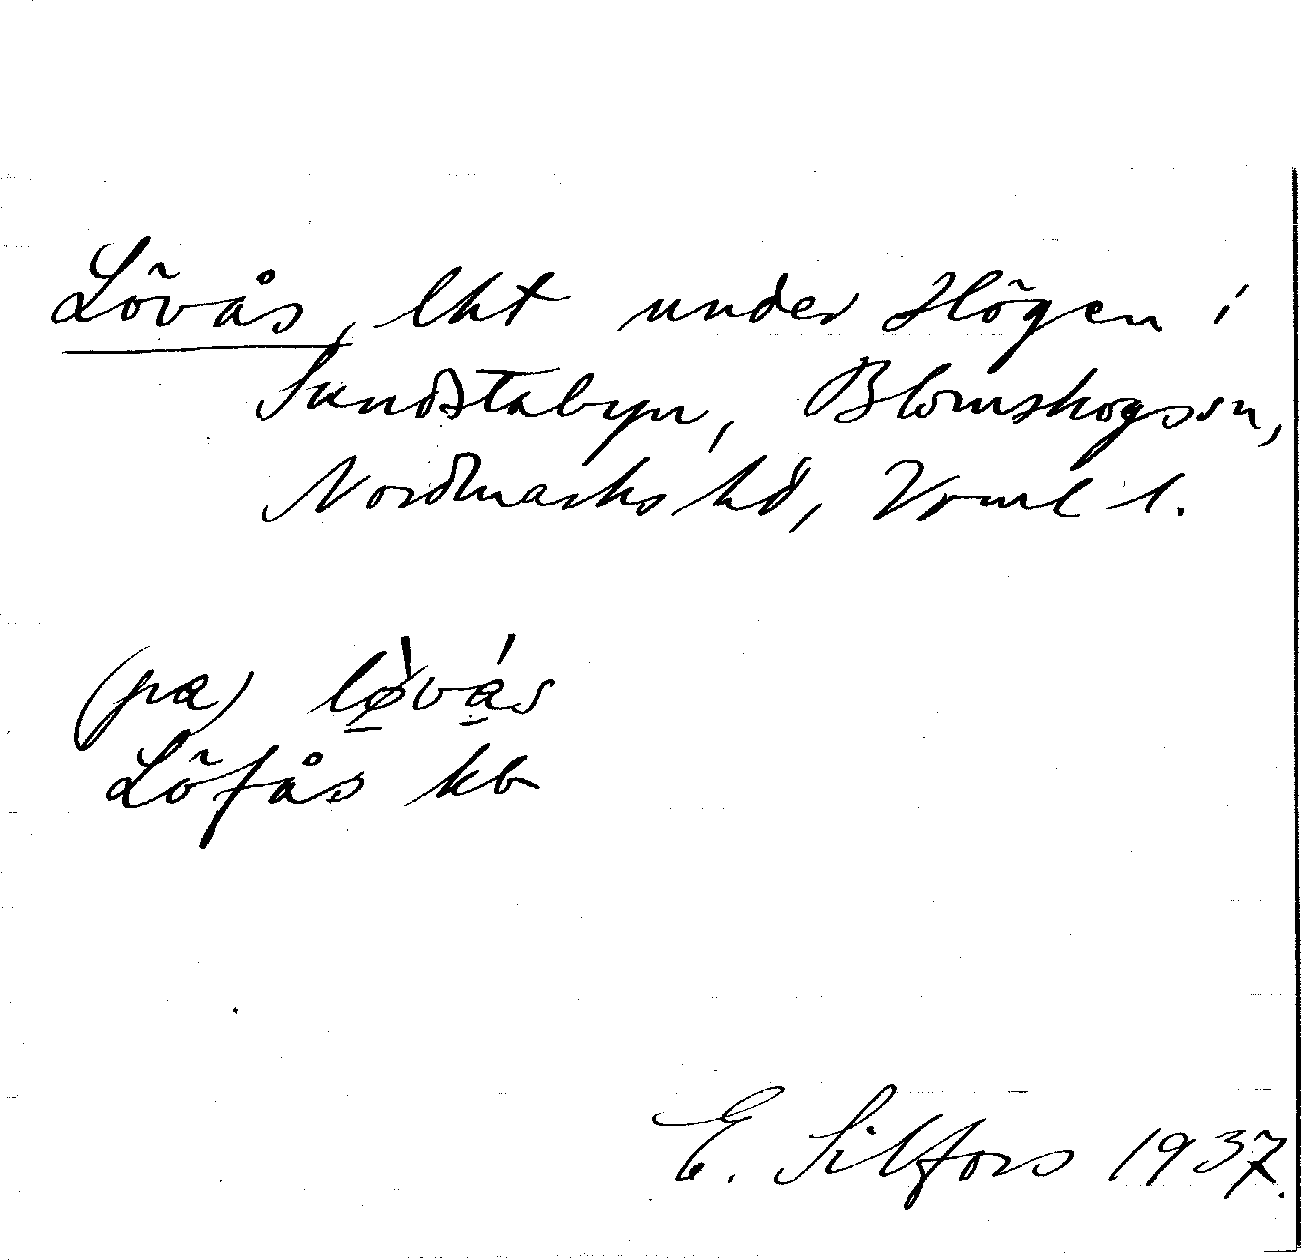 Lövås, lht under Högen i
Sundstabyn, Blomskogs sn,
Nordmarks hd, Vrml l.
(pa) lø̱̀vá̱s
Löfås kb
E. Silfors 1937.